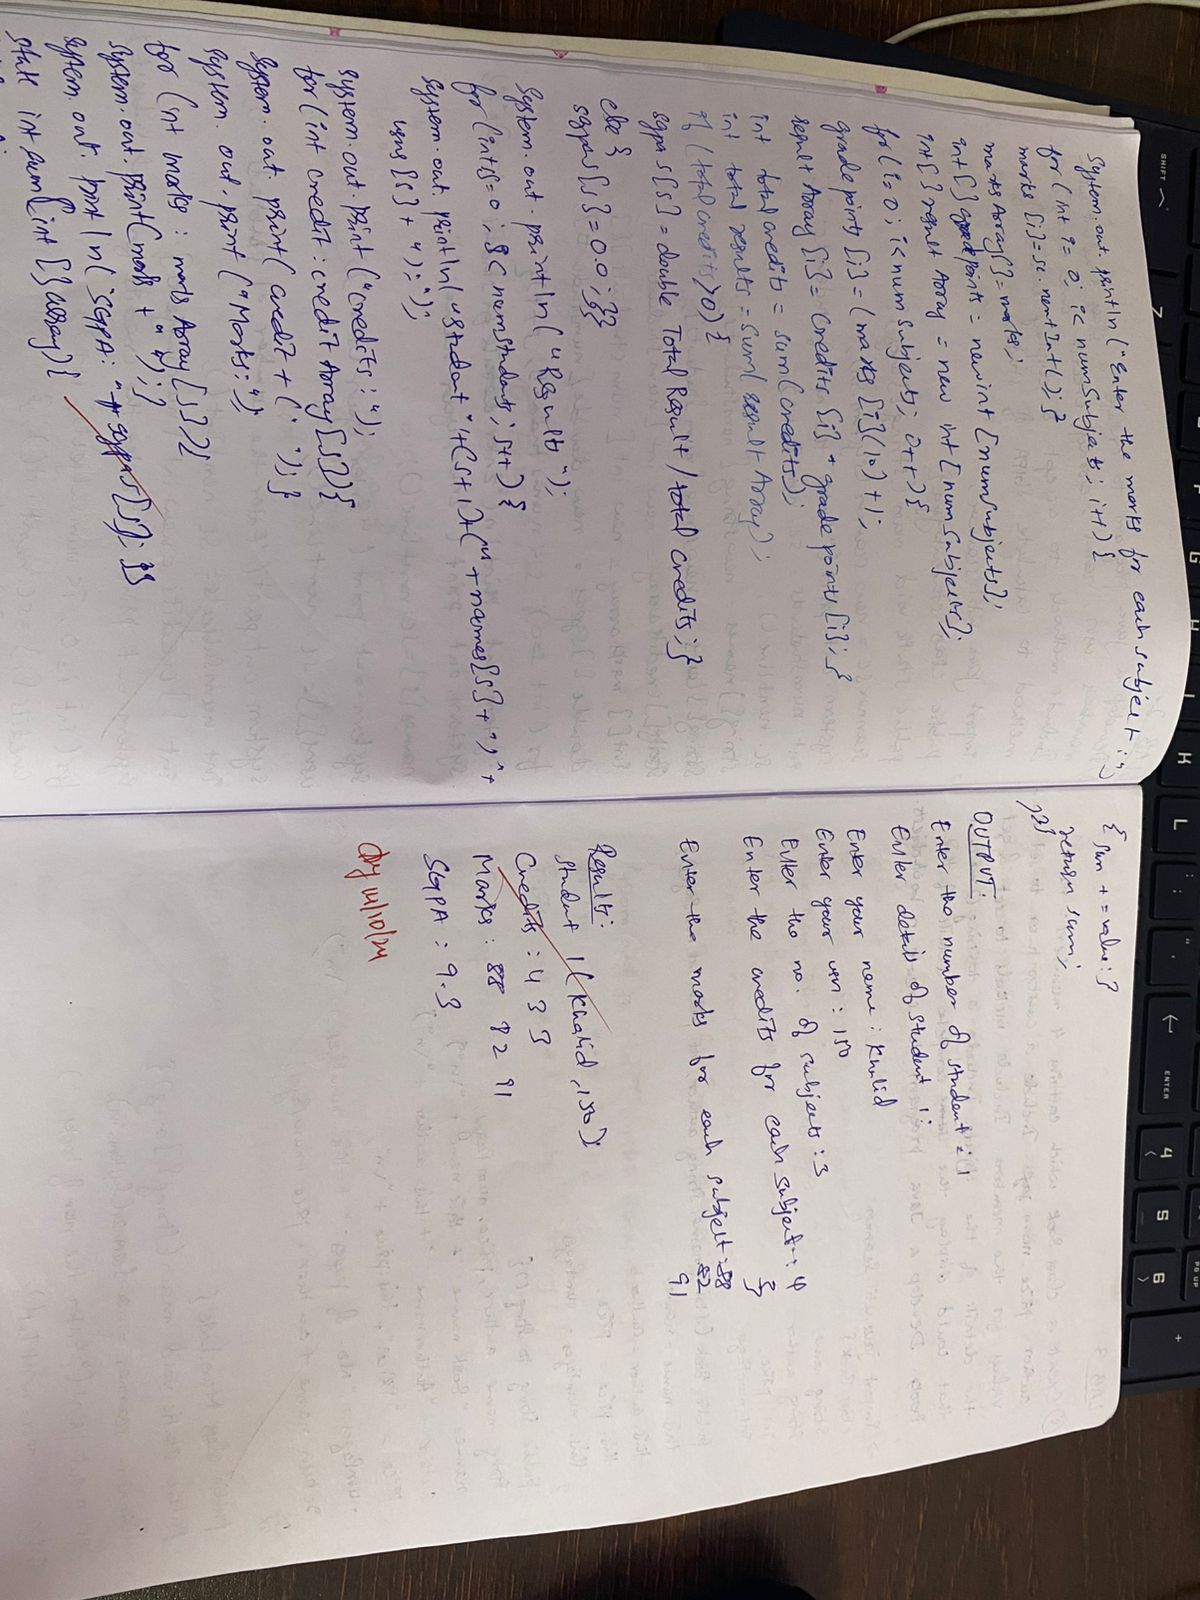 System.out.println("Enter the marks for each subject:")
for(int i=0; i<numSubjects; i++){
marks[i]=sc.nextInt();}
marksArray[s]=marks;
int[] gradepoints = new int[numSubjects];
int[] result Array = new int[numSubjects];
for(i=0; i<numSubjects; i++){
gradepoints[i]=(marks[i]/10)+1;
result Array[i]=credits[i]*gradepoints[i];}
int totalcredits = sum(credits);
int total results = sum(result Array);
if(totalcredits>0){
sgpas[s]=double Total Result/total credits;}
else{
sgpas[i]=0.0;}}
System.out.println("Results");
for(int s=0; s<numStudent; s++){
System.out.println("Student"+(s+1)+("+names[s]+","+
usns[s]+"):");
System.out.print("credits:");
for(int credit:creditArray[s]){
System.out.print(credit+(" ");}
System.out.print("Marks:");
for(int marks: marksArray[s]){
System.out.print(marks+" ");}
System.out.println("SGPA:"+sgpas[s]);}}
static int sum(int[]array){
{sum+=value;}
return sum;
}}}
OUTPUT:
Enter the number of student:1
Enter details of student 1:
Enter your name: Khalid
Enter your usn: 150
Enter the no. of subjects:3
Enter the credits for each subject: 4
3
Enter the marks for each subject: 88
82
91
Results:
Student 1(Khalid,150):
Credits: 4 3 3
Marks: 88 82 91
SGPA: 9.3
SHIFT
Z
G
H
K
L
ENTER
4
5
6
PG UP
+